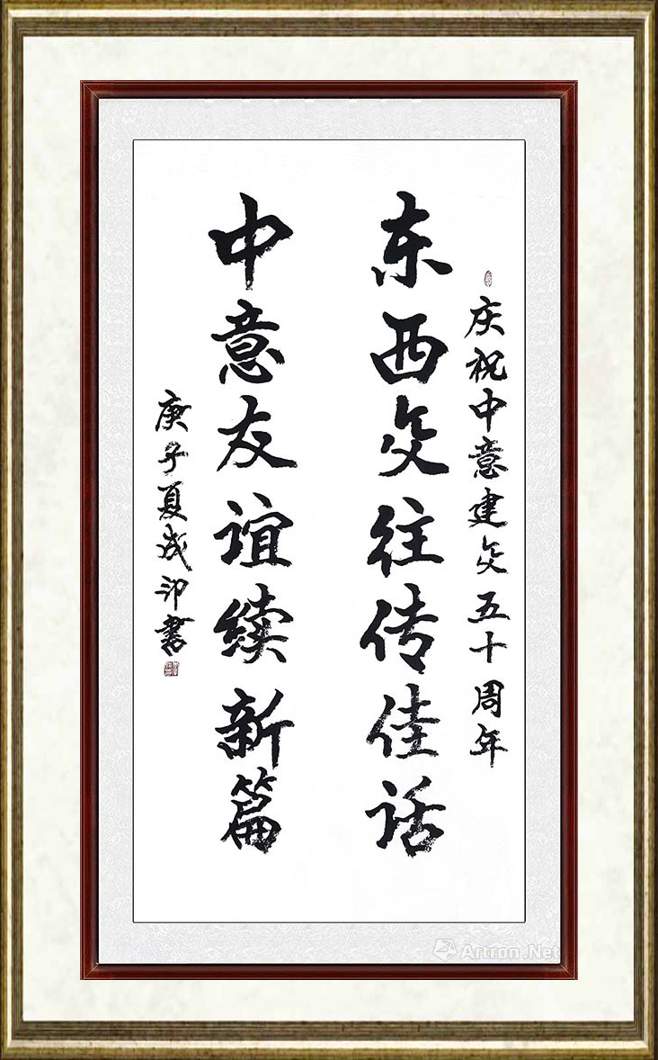 庆祝中意建交五十周年
东西交往传佳话
中意友谊续新篇
庚子夏成印书
Artron.Net